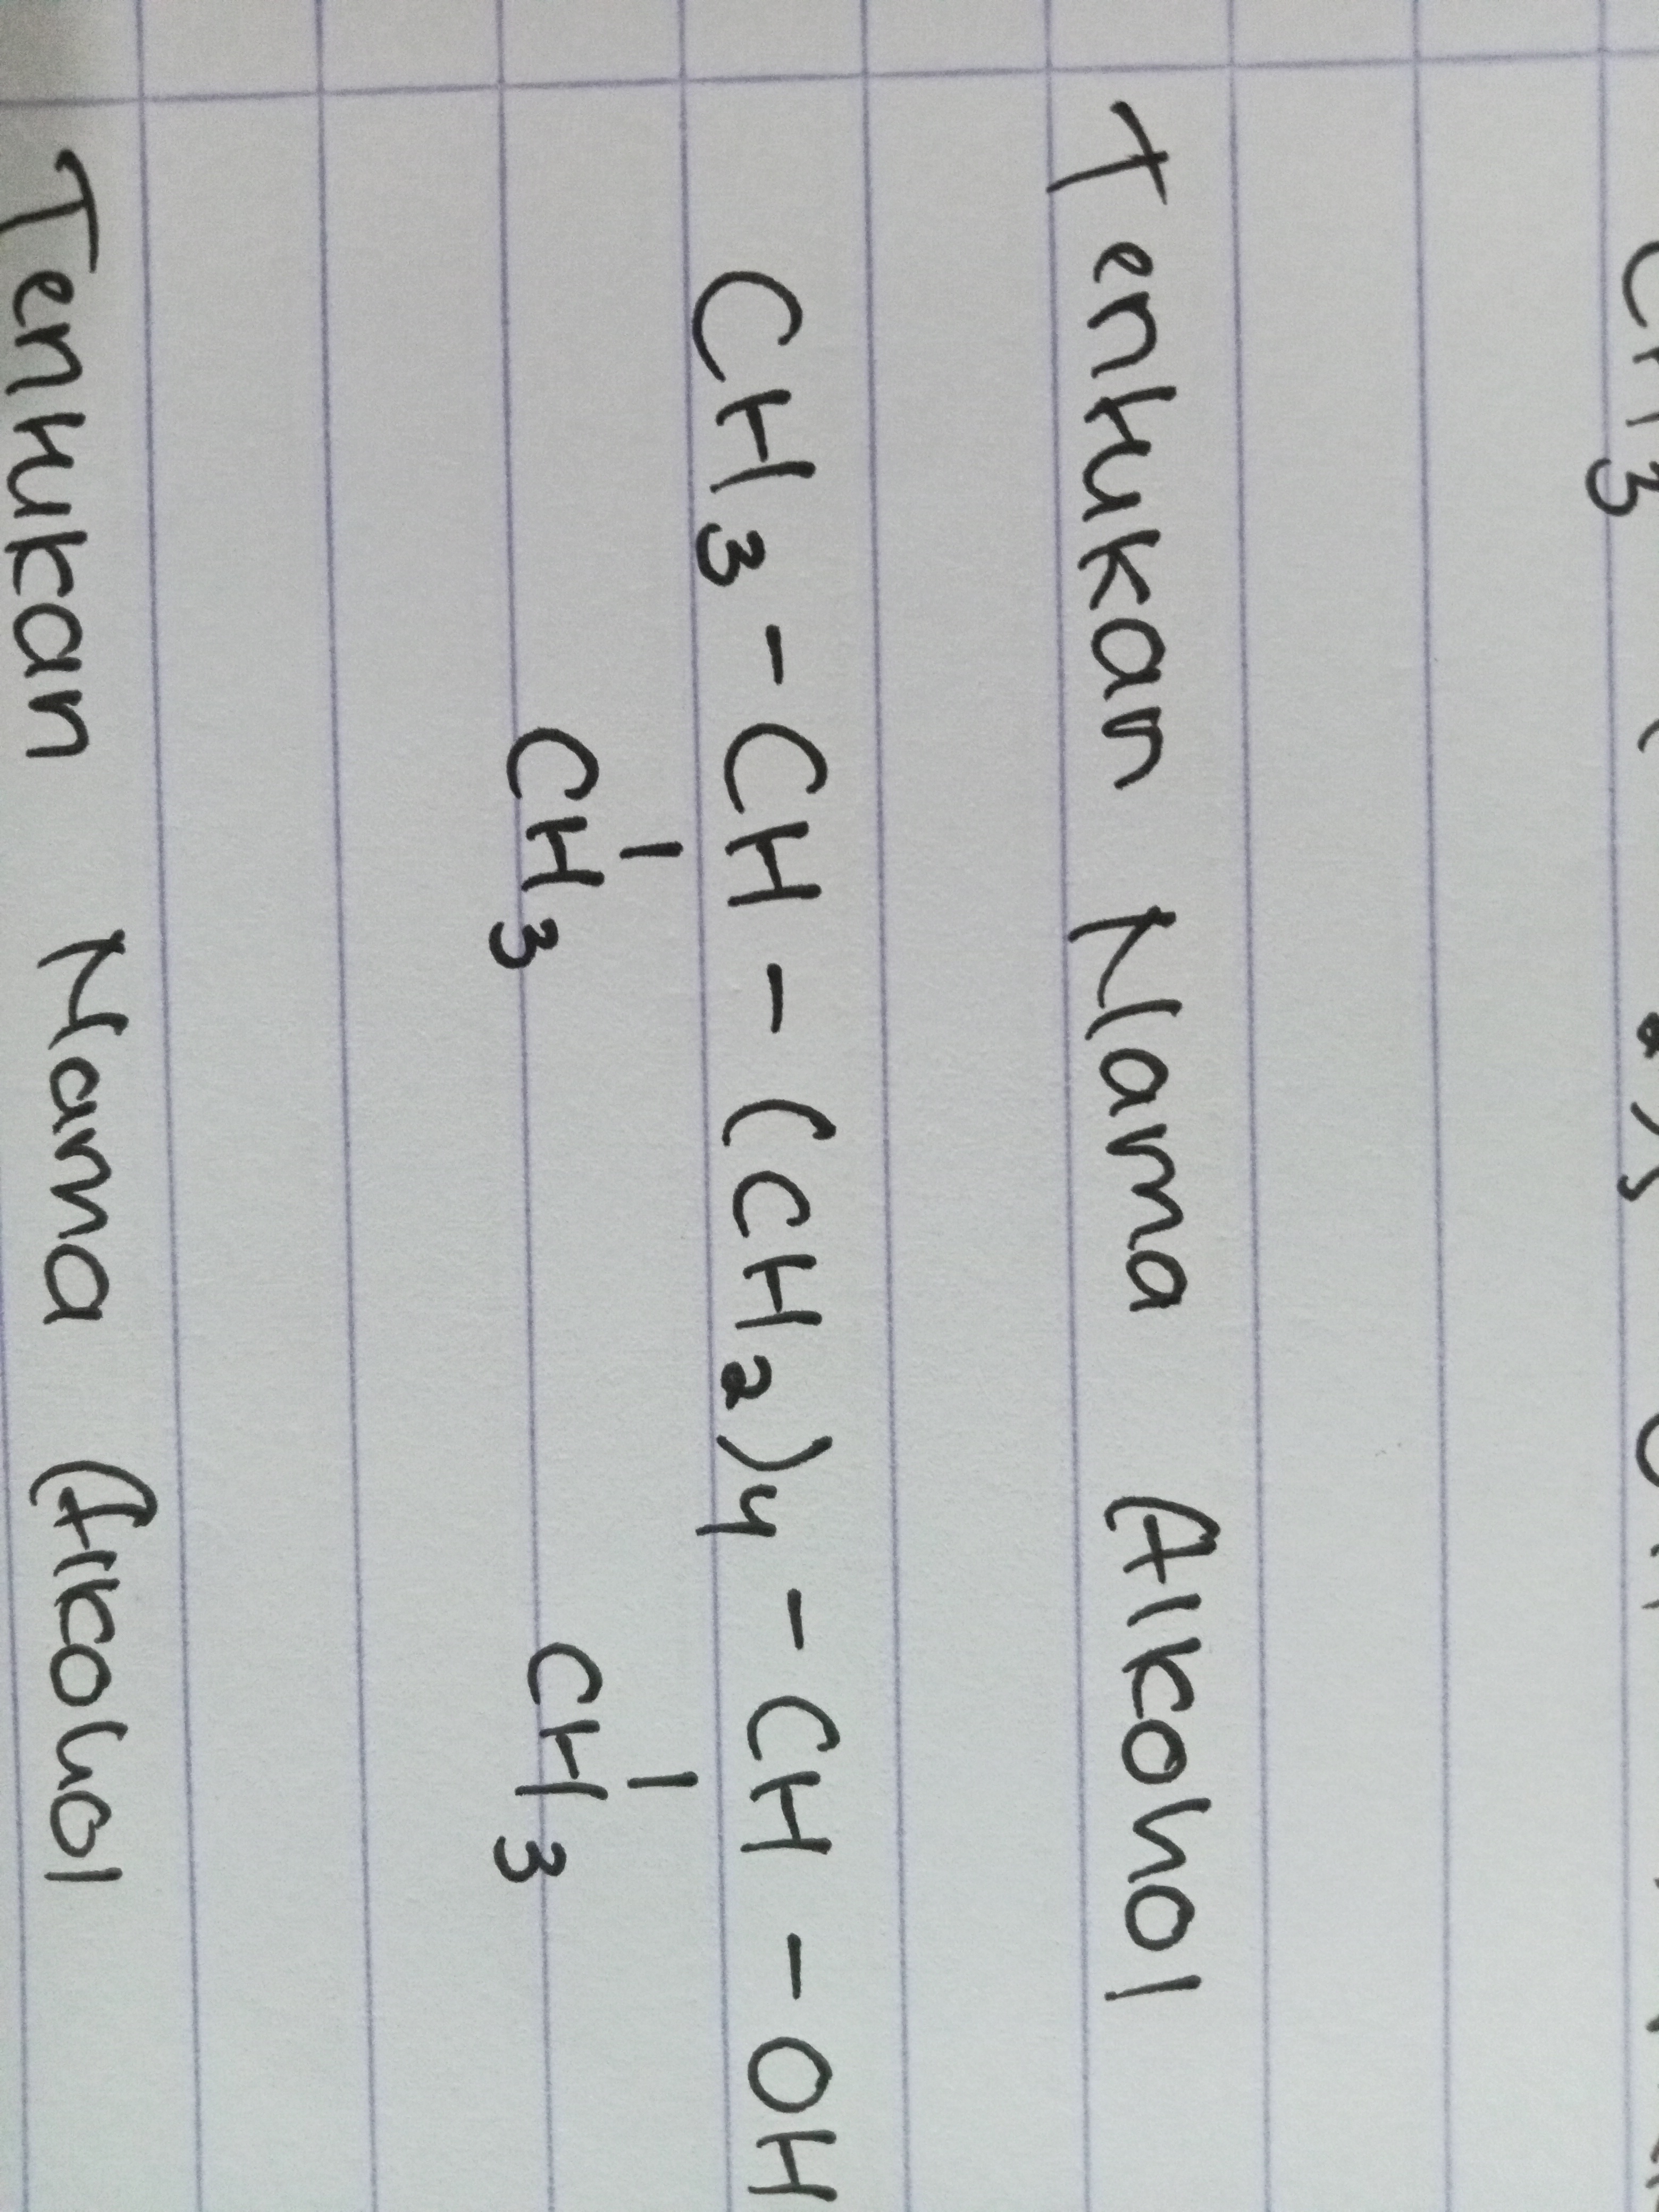 CH3
Tenhukan Nama Alkohol
CH3 - CH - (CH2)4 - CH - OH
CH3 CH3
Tenhukan Nama Alkohol